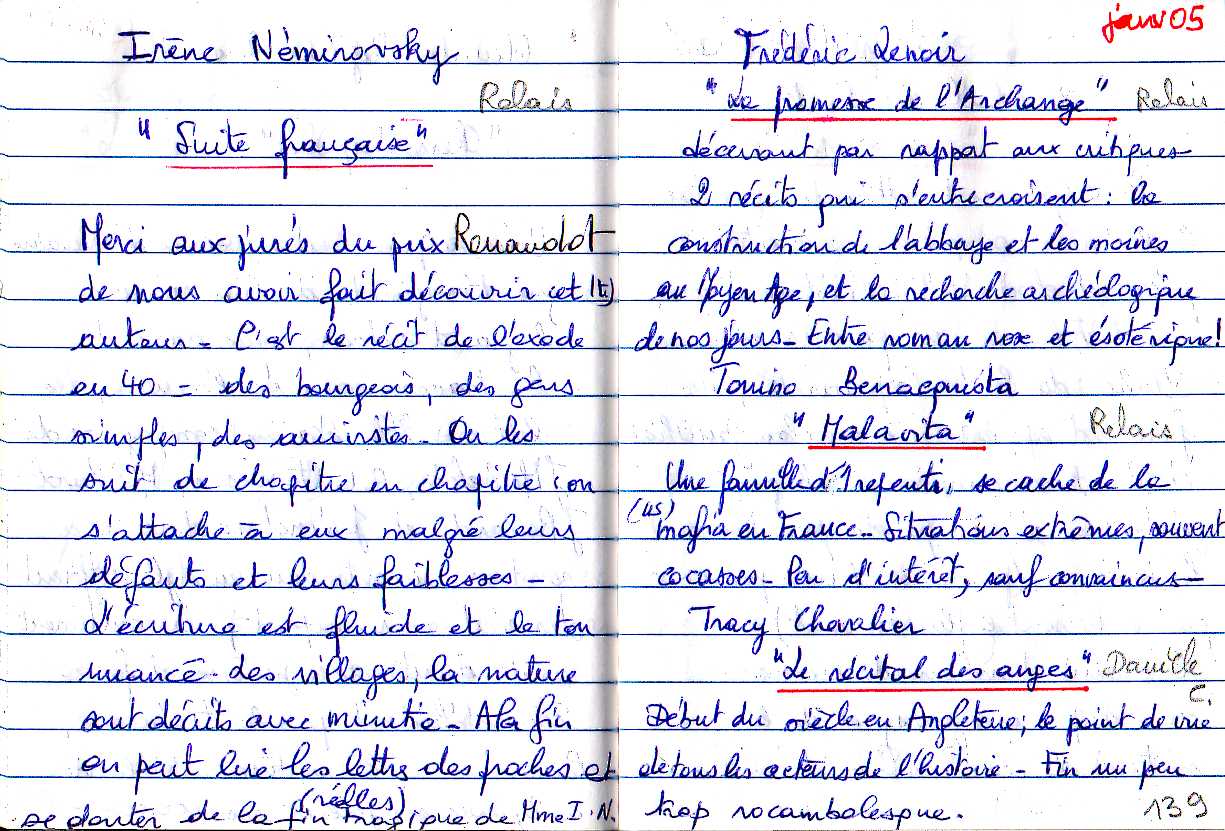 Irène Némirovsky
Relais
"Suite française"
Merci aux jurés du prix Renaudot
de nous avoir fait découvrir cet(te)
auteur - C'est le récit de l'exode
en 40 = des bourgeois, des gens
simples, des
On les
suit de chapitre en chapitre on
s'attache à eux malgré leurs
défauts et leurs faiblesses -
L'écriture est fluide et le ton
nuancé - des villages, la nature
sont décrits avec minutie - A la fin
on peut lire les lettres des proches et
(réelles)
se douter de la fin tragique de Mme I.N.
janv 05
Frédéric Lenoir
"La promesse de l'Archange" Relais
décevant par rapport aux critiques -
2 récits qui s'entrecroisent : la
construction de l'abbaye et les moines
au Moyen Age, et la recherche archéologique
de nos jours - Entre roman rose et ésotérique !
Tonino Benacquista
"Malavita" Relais
Une famille d'1 repenti, se cache de la
(US)
mafia en France - Situations extrêmes, souvent
cocasses - Peu d'intérêt, sauf convaincus -
Tracy Chevalier
"Le récital des anges" Danièle C.
Début du siècle en Angleterre ; le point de vue
de tous les acteurs de l'histoire - Fin un peu
trop rocambolesque. 139